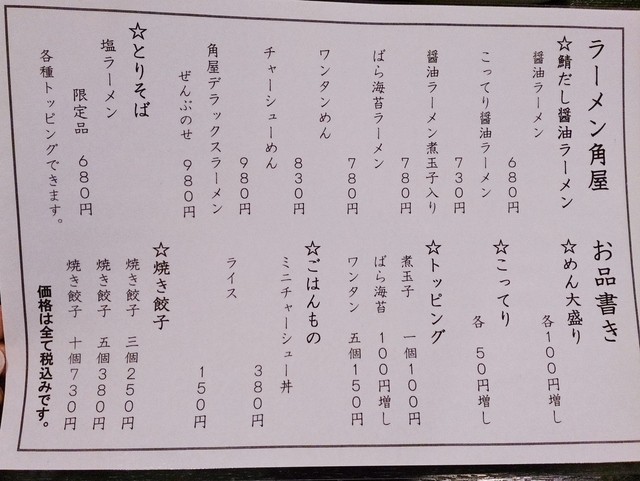 ラーメン角屋　お品書き
☆鯖だし醤油ラーメン
醤油ラーメン
680円
こってり醤油ラーメン
730円
醤油ラーメン煮玉子入り
780円
ばら海苔ラーメン
780円
ワンタンめん
830円
チャーシューめん
980円
角屋デラックスラーメン
ぜんぶのせ　980円
☆とりそば
塩ラーメン
限定品　680円
各種トッピングできます。
☆めん大盛り
各100円増し
☆こってり
各　50円増し
☆トッピング
煮玉子　一個100円
ばら海苔　100円増し
ワンタン　五個150円
☆ごはんもの
ミニチャーシュー丼
380円
ライス
150円
☆焼き餃子
焼き餃子　三個250円
焼き餃子　五個380円
焼き餃子　十個730円
価格は全て税込みです。